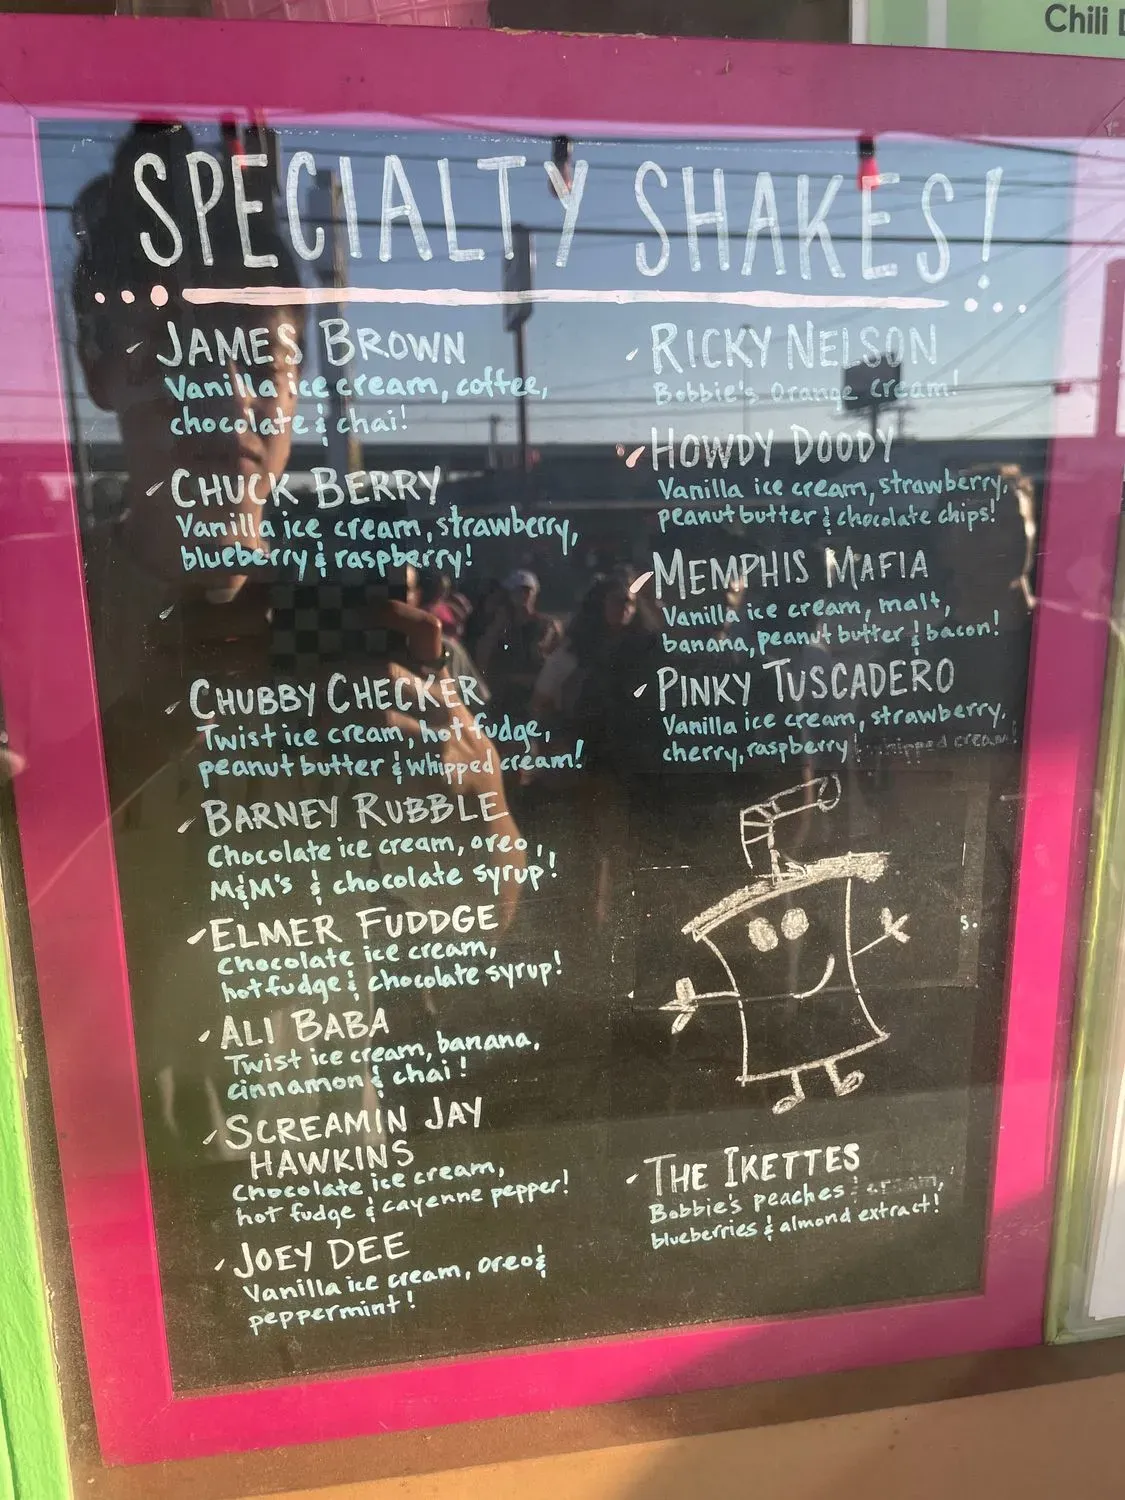 Chili
SPECIALTY SHAKES!
JAMES BROWN
Vanilla ice cream, coffee,
chocolate & chai!
CHUCK BERRY
Vanilla ice cream, strawberry,
blueberry & raspberry!
CHUBBY CHECKER
Twist ice cream, hot fudge,
peanut butter & whipped cream!
BARNEY RUBBLE
Chocolate ice cream, oreo,
M&M's & chocolate syrup!
ELMER FUDDGE
Chocolate ice cream,
hot fudge & chocolate syrup!
ALI BABA
Twist ice cream, banana,
cinnamon & chai!
SCREAMIN JAY
HAWKINS
Chocolate ice cream,
hot fudge & cayenne pepper!
JOEY DEE
Vanilla ice cream, oreo &
peppermint!
RICKY NELSON
Bobbie's Orange cream!
HOWDY DOODY
Vanilla ice cream, strawberry,
peanut butter & chocolate chips!
MEMPHIS MAFIA
Vanilla ice cream, malt,
banana, peanut butter & bacon!
PINKY TUSCADERO
Vanilla ice cream, strawberry,
cherry, raspberry & whipped cream!
s.
THE IKETTES
Bobbie's peaches & cream,
blueberries & almond extract!